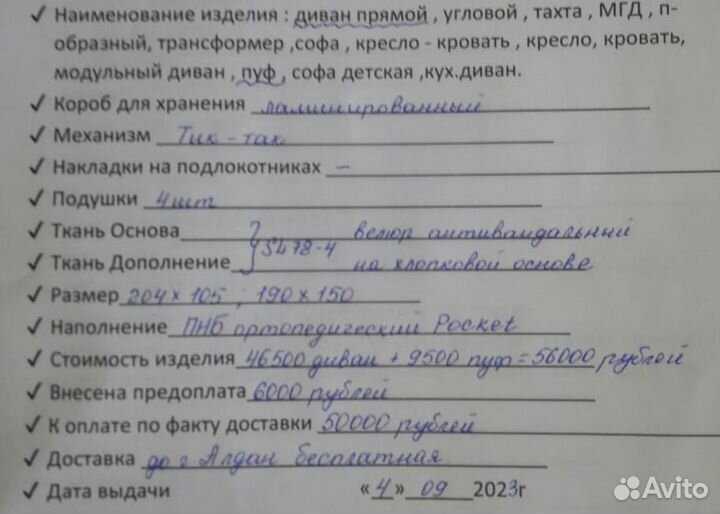 ✓ Наименование изделия : диван прямой , угловой , тахта , МГД , п-
образный, трансформер ,софа , кресло - кровать , кресло, кровать,
модульный диван , пуф , софа детская ,кух.диван.
✓ Короб для хранения ламинированный
✓ Механизм Тик - так
✓ Накладки на подлокотниках —
✓ Подушки 4 шт
✓ Ткань Основа велюр антивандальный
5478-4
✓ Ткань Дополнение на хлопковой основе
✓ Размер 204 х 105 , 190 х 150
✓ Наполнение ПНБ ортопедический Pocket
✓ Стоимость изделия 46500 диван + 9500 пуф = 56000 рублей
✓ Внесена предоплата 6000 рублей
✓ К оплате по факту доставки 50000 рублей
✓ Доставка до г Алдан бесплатная
✓ Дата выдачи «4» 09 2023г
Avito